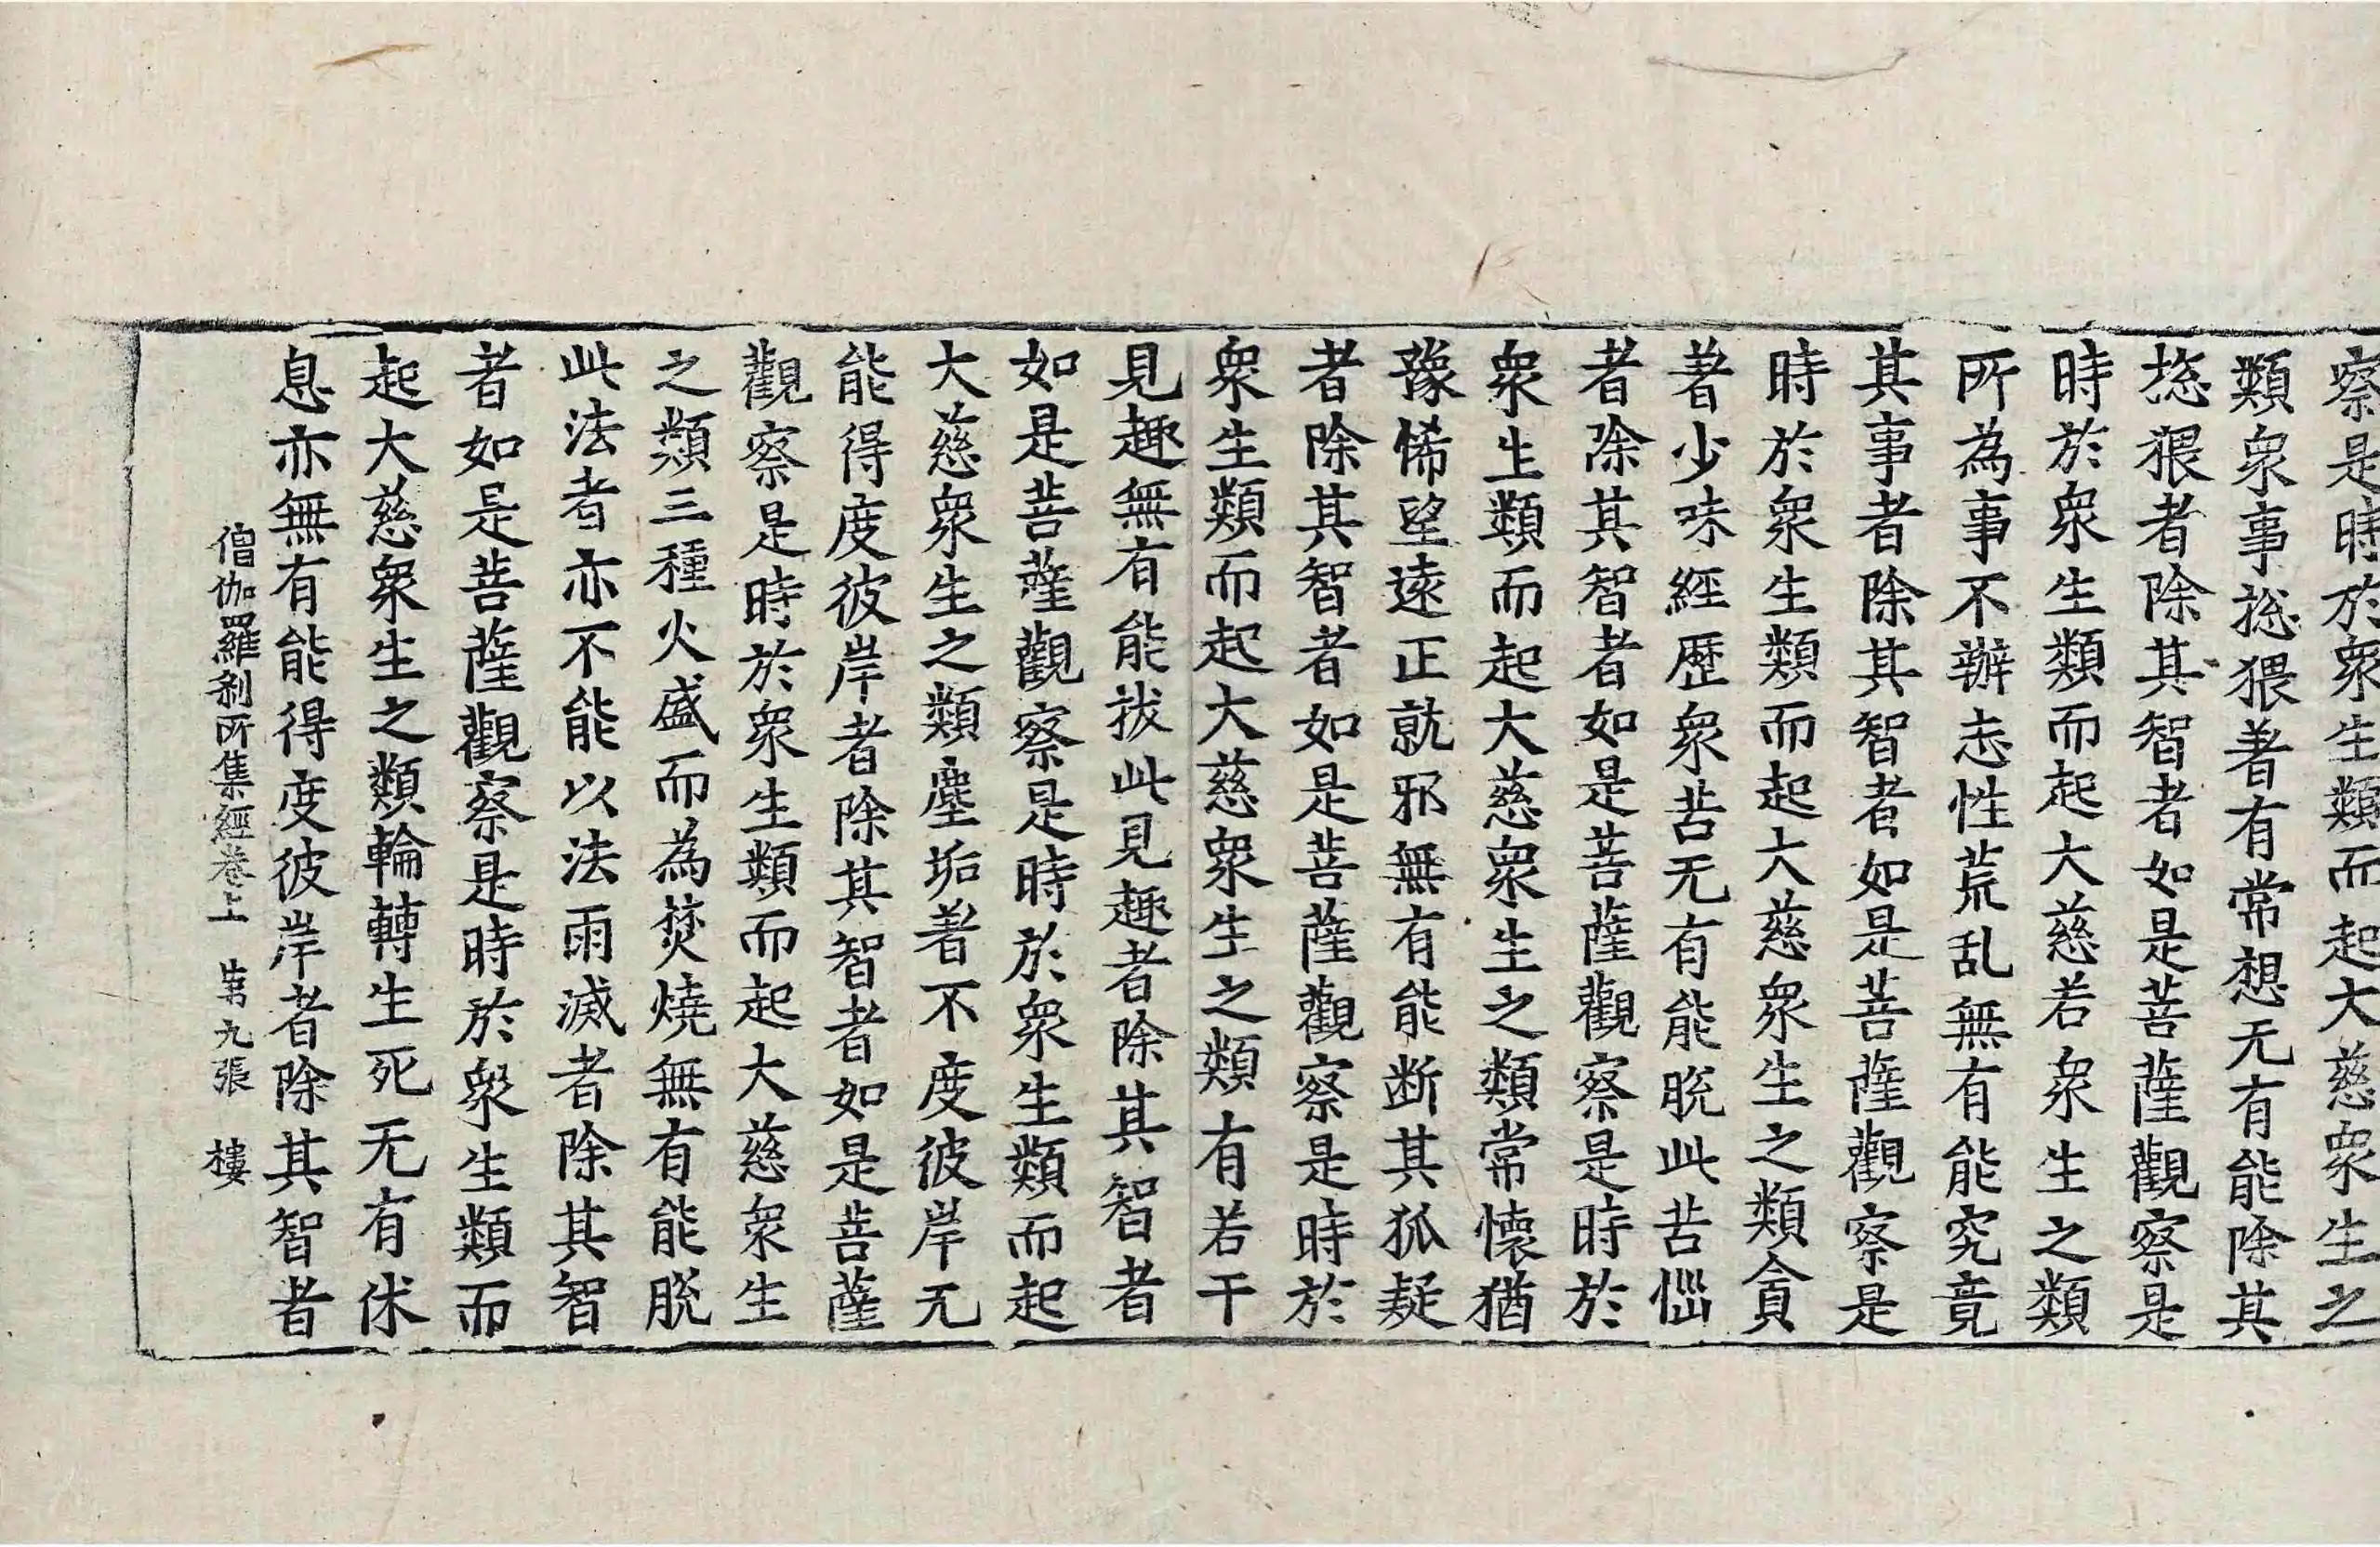 察是時於衆生類而起大慈衆生之
類衆事揔猥著有常想无有能除其
揔猥者除其智者如是菩薩觀察是
時於衆生類而起大慈若衆生之類
所為事不辦志性荒乱無有能究竟
其事者除其智者如是菩薩觀察是
時於衆生類而起大慈衆生之類貪
著少味經歷衆苦无有能脫此苦惱
者除其智者如是菩薩觀察是時於
衆生類而起大慈衆生之類常懷猶
豫悕望遠正就邪無有能断其狐疑
者除其智者如是菩薩觀察是時於
衆生類而起大慈衆生之類有若干
見趣無有能拔此見趣者除其智者
如是菩薩觀察是時於衆生類而起
大慈衆生之類塵垢著不度彼岸无
能得度彼岸者除其智者如是菩薩
觀察是時於衆生類而起大慈衆生
之類三種火盛而為焚燒無有能脫
此法者亦不能以法雨滅者除其智
者如是菩薩觀察是時於衆生類而
起大慈衆生之類輪轉生死无有休
息亦無有能得度彼岸者除其智者
僧伽羅刹所集經卷上 第九張 樓